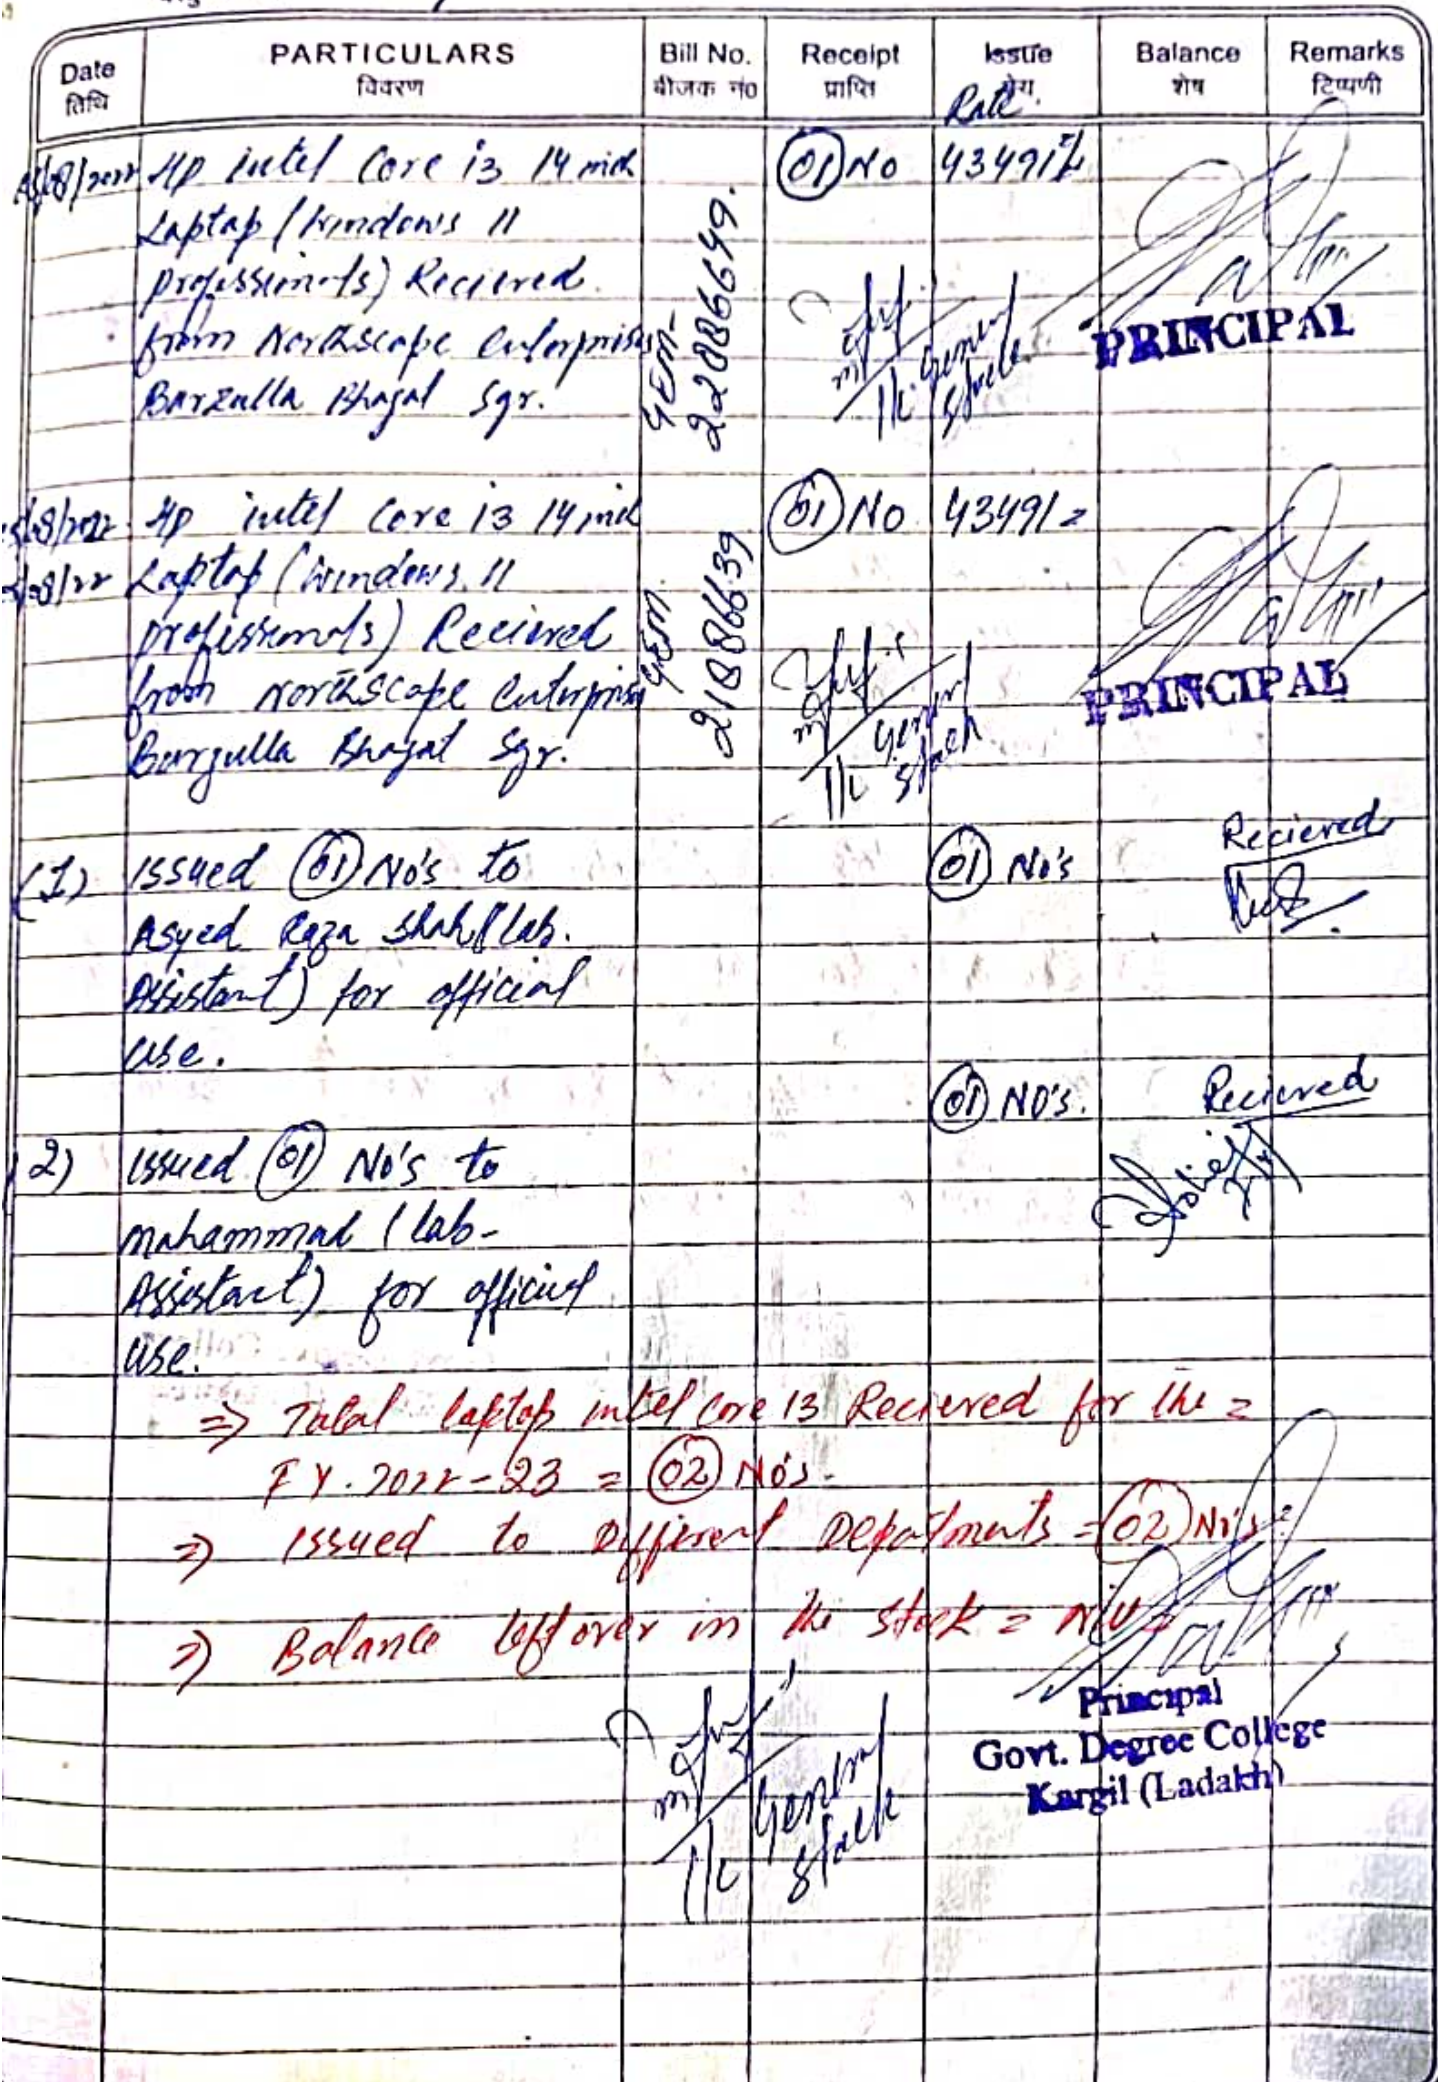 Date PARTICULARS Bill No. Receipt Issue Balance Remarks
तिथि विवरण बीजक नं० प्राप्ति शेष टिप्पणी
Rate
HP intel Core i3 14 inch 01 No 43491/-
Laptop (Windows 11
professionals) Recieved
from Northscape Enterprises
Barzulla Bhagat Sgr.
GEM-
22886649.
I/c General
Stock
PRINCIPAL
HP intel Core i3 14 inch 01 No 43491=
Laptop (Windows 11
professionals) Recieved
from Northscape Enterprises
Barzulla Bhagat Sgr.
GEM
21886639
I/c General
Stock
PRINCIPAL
(1) Issued 01 No's to 01 No's Recieved
Asyed Raza Shah (lab.
Assistant) for official
use.
01 NO's. Recieved
2) Issued 01 No's to
Mohammad (lab-
Assistant) for official
use.
=> Total laptop intel core i3 Recieved for the =
F Y. 2022-23 = 02 No's.
=> Issued to Different Departments = 02 No's =
=> Balance left over in the stock = Nil
I/c General
Stock
Principal
Govt. Degree College
Kargil (Ladakh)